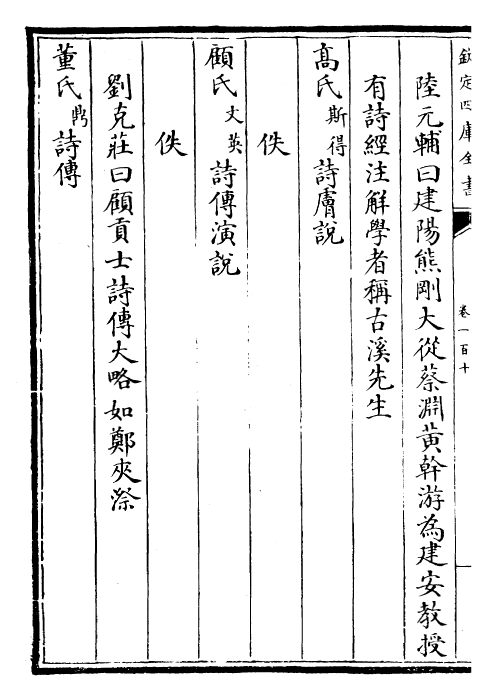 欽定四庫全書
卷一百十
陸元輔曰建陽熊剛大從蔡淵黃幹游為建安教授
有詩經注解學者稱古溪先生
高氏斯得詩膚說
佚
顧氏文英詩傳演說
佚
劉克莊曰顧貢士詩傳大略如鄭夾漈
董氏鼎詩傳